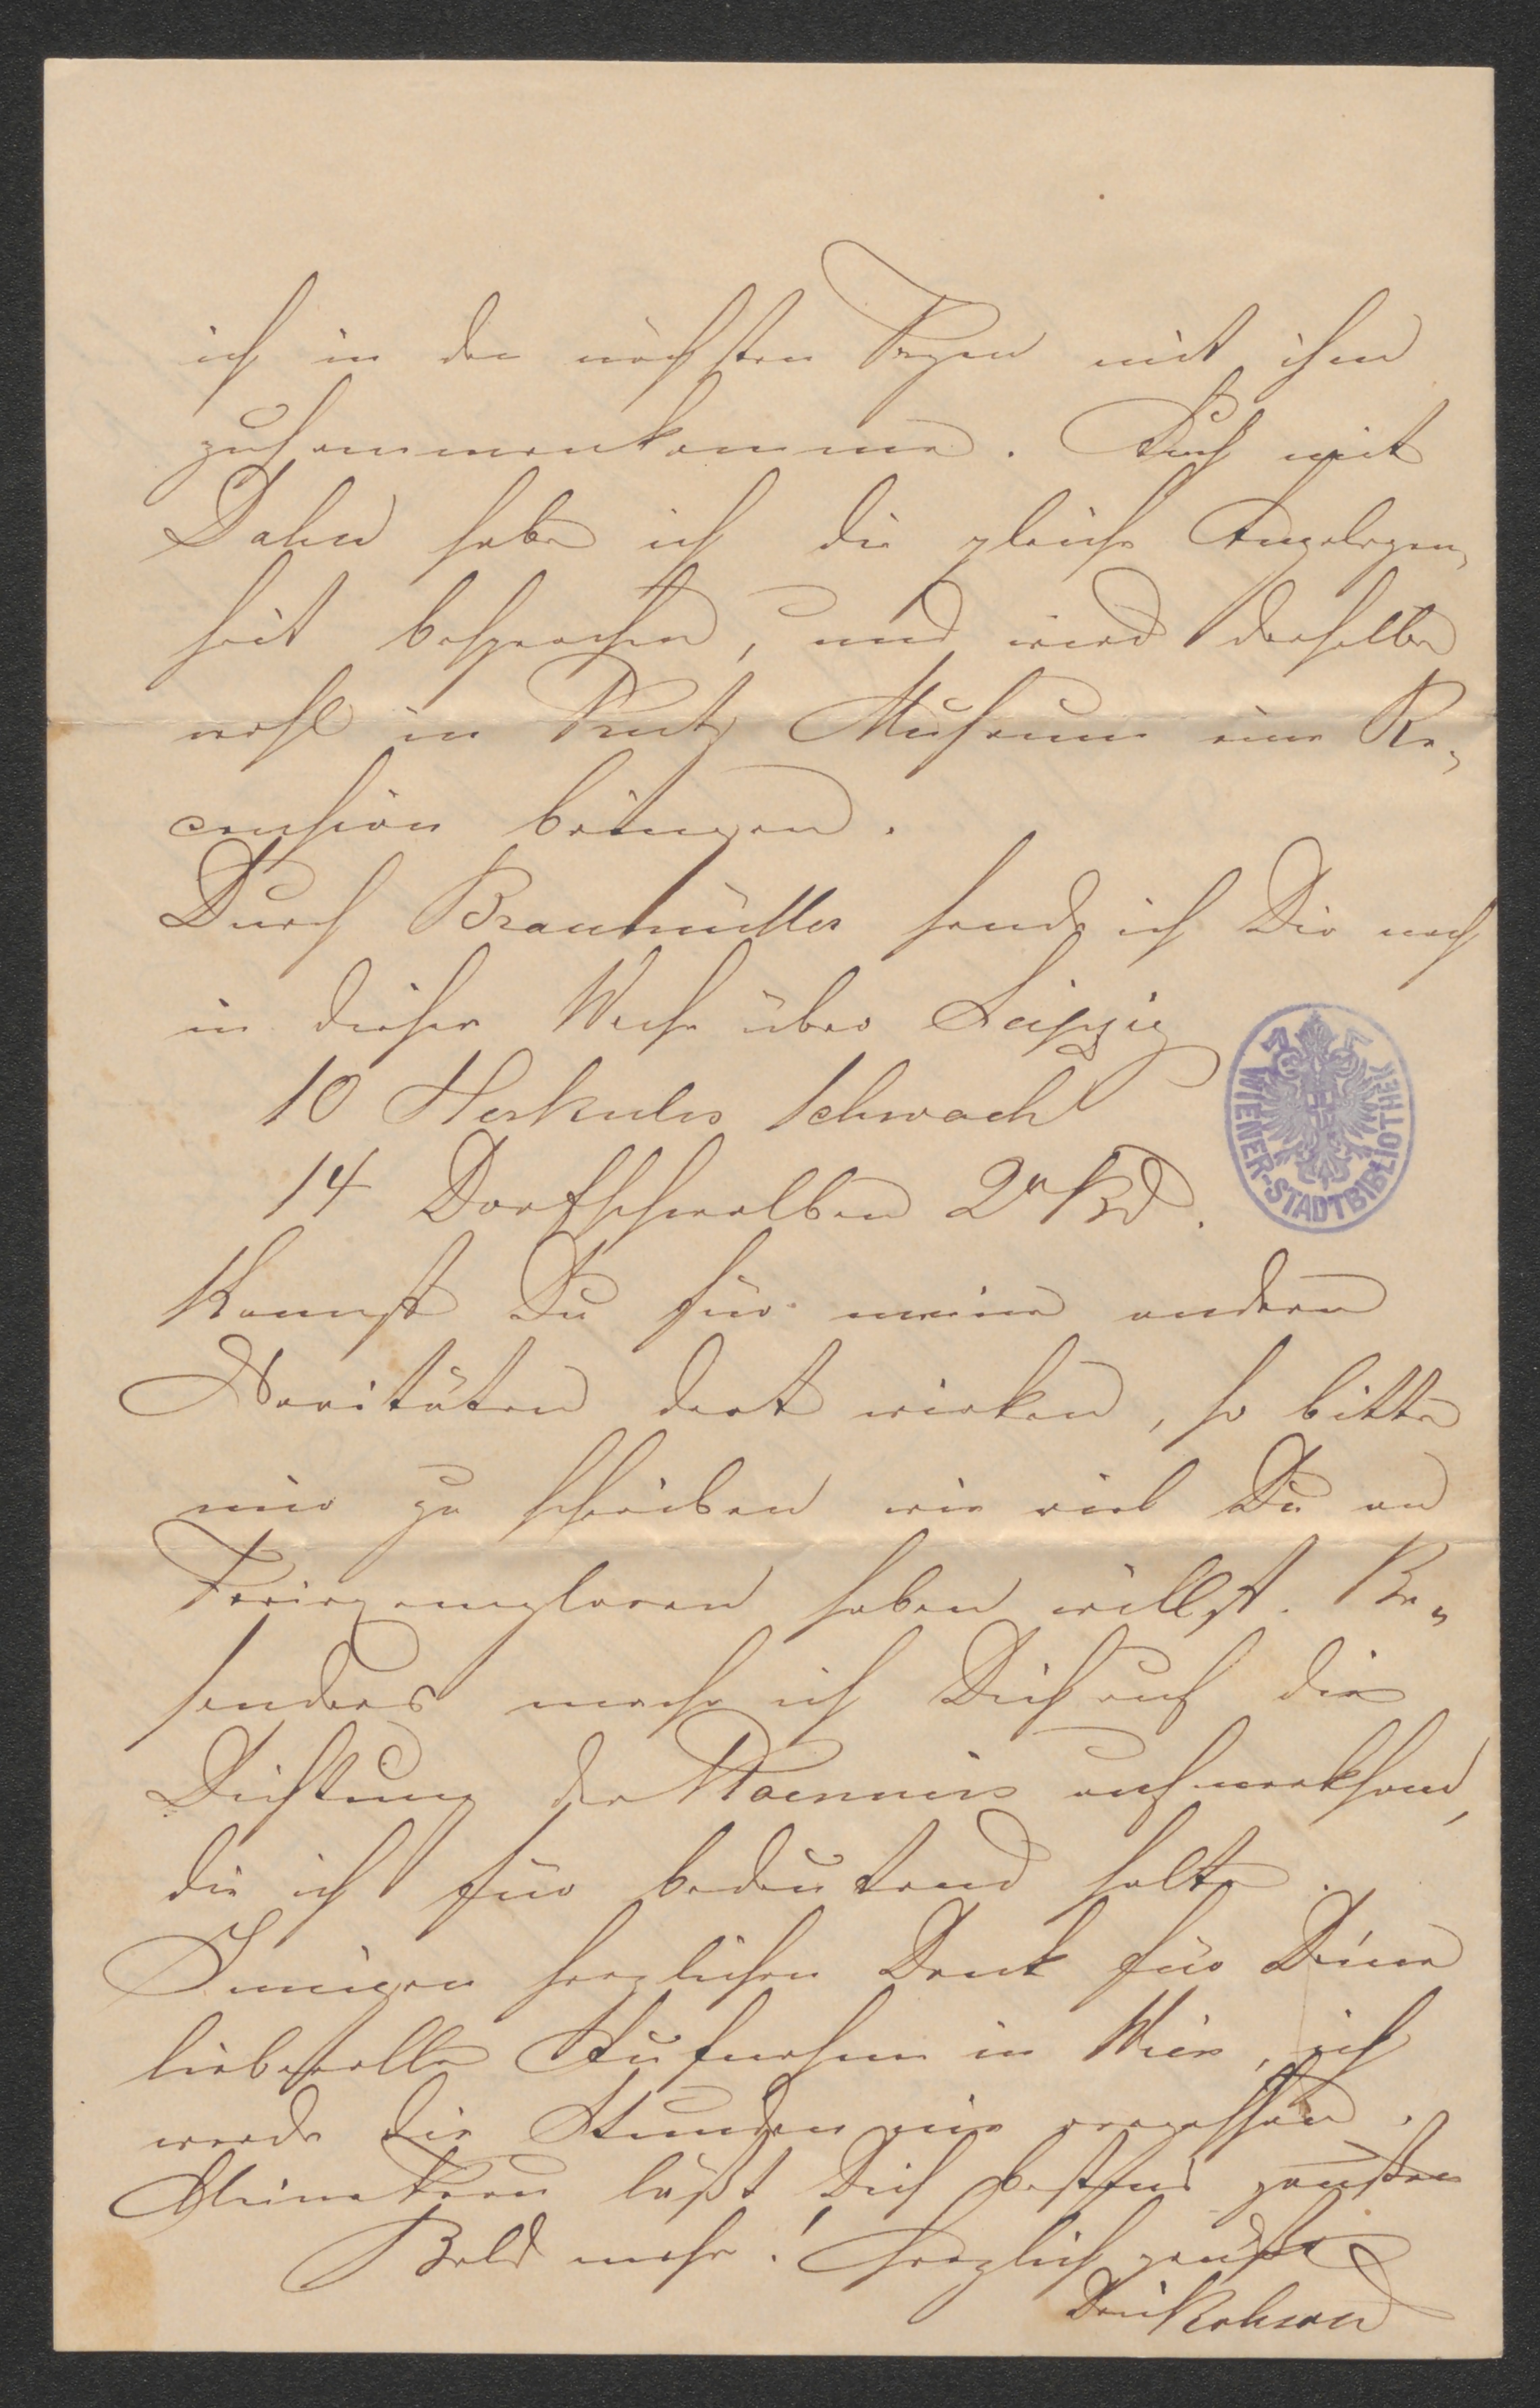 ich in den nächsten Tagen mit ihm
zusammenkomme. Auch mit
Dahn habe ich die gleiche Angelegen„
heit besprochen, und wird derselbe
wohl in Prutz Museum eine Re„
cension bringen.
Durch Braumüller sende ich Dir noch
in dieser Woche über Leipzig
10 Herkules Schwach
14 Dorfschwalben 2r Bd.
Kannst Du für meine andern
Novitäten dort wirken, so bitte
mir zu schreiben wie viel Du an
Freiexemplaren haben willst. Be„
sonders mache ich Dich auf die
Dichtung der Ploennies aufmerksam,
die ich für bedeutend halte.
Innigen herzlichen Dank für Deine
liebevolle Aufnahme in Wien, ich
werde die Stunden nie vergessen.
Meine Frau läßt Dich bestens grüßen
Bald mehr! Herzlich grüßt
Dein
WIENER-STADTBIBLIOTHEK